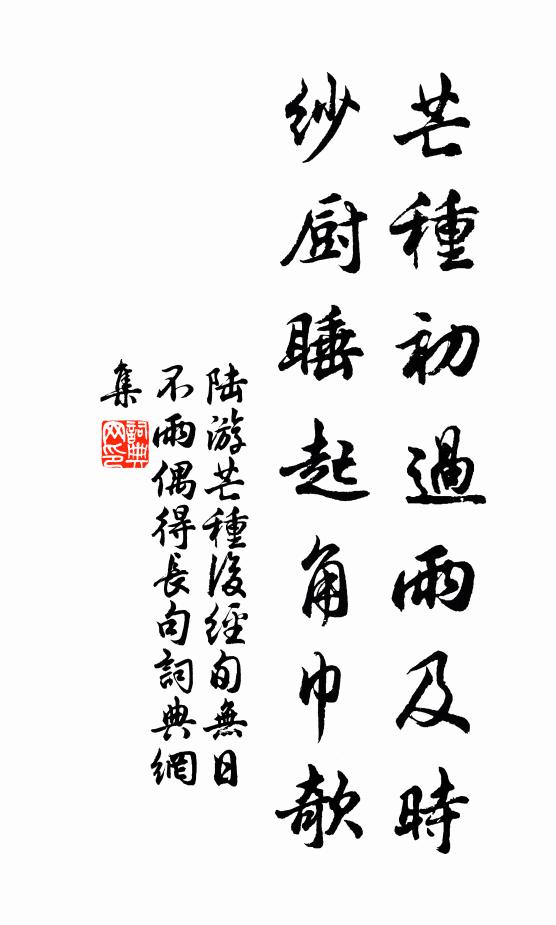 芒種初過雨及時
紗厨睡起角巾欹
陆游芒種後經旬無日
不雨偶得長句詞典網
集
詞典
网印